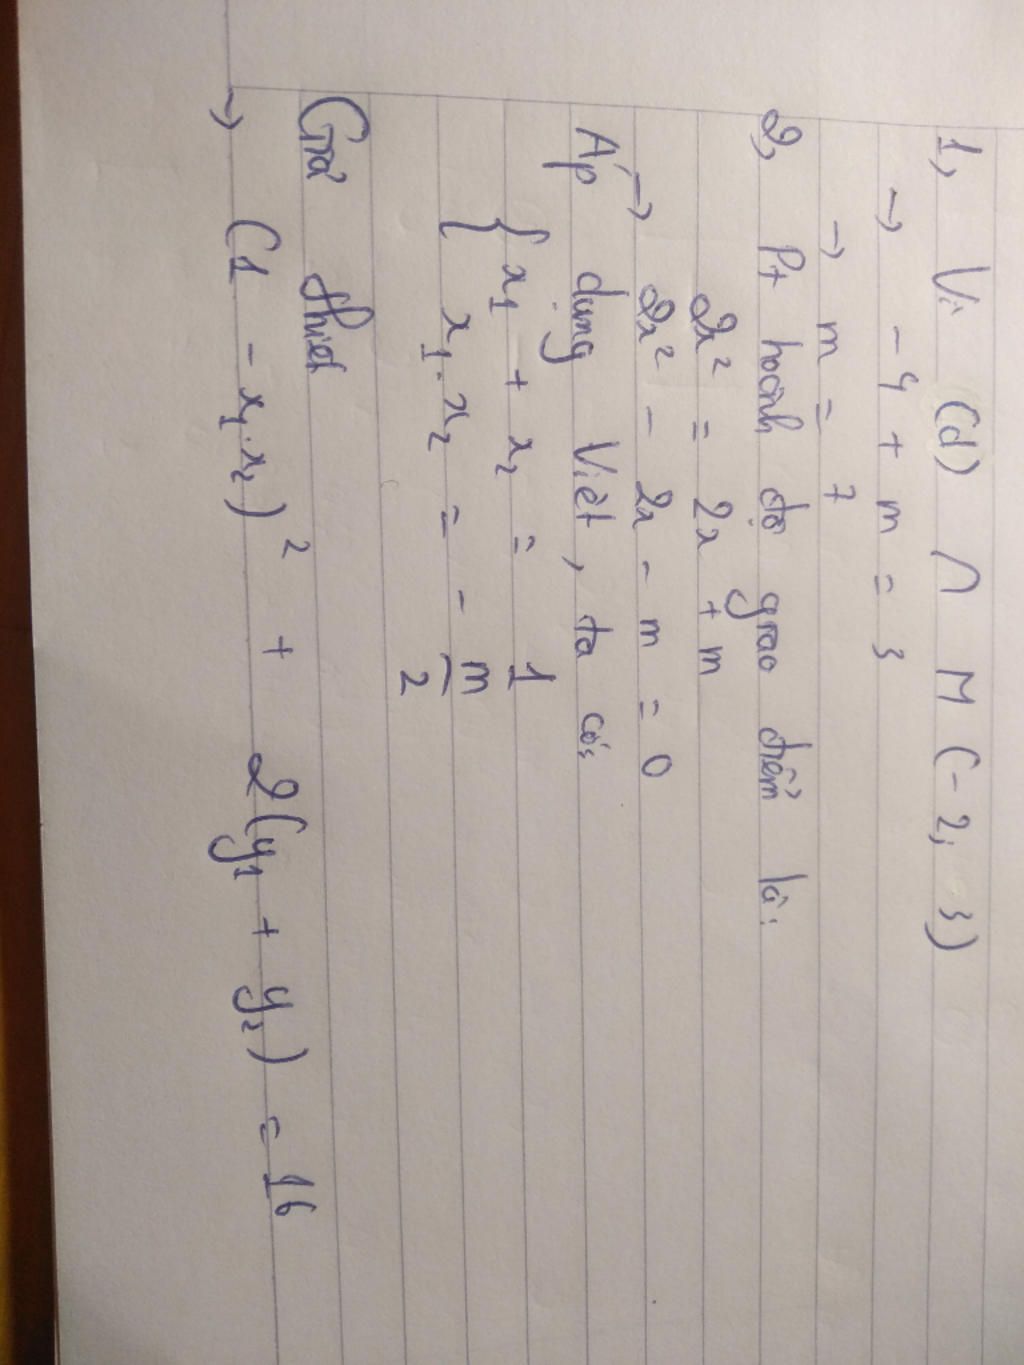 1, Vì (d) ∩ M (-2; 3)
→ -4 + m = 3
→ m = 7
2, Pt hoành độ giao điểm là:
2x² = 2x + m
→ 2x² - 2x - m = 0
Áp dụng Viét, ta có:
{ x₁ + x₂ = 1
x₁.x₂ = - m/2
Giả thiết
→ (1 - x₁.x₂)² + 2(y₁ + y₂) = 16